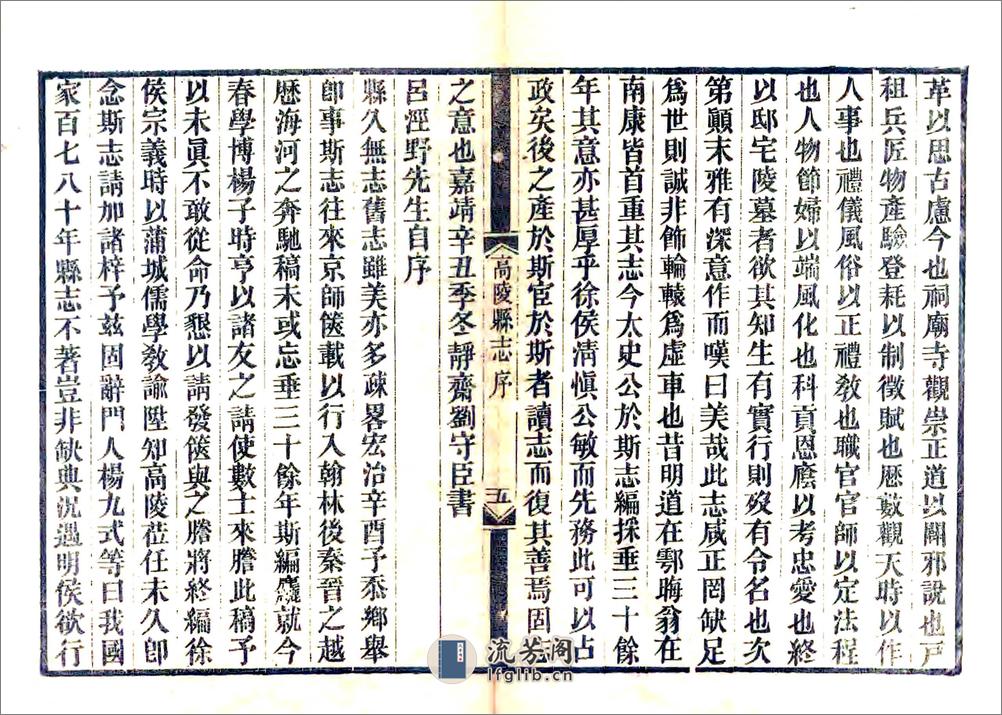 革以思古慮今也祠廟寺觀崇正道以闢邪說也戸
租兵匠物產驗登耗以制徵賦也歷數觀天時以作
人事也禮儀風俗以正禮教也職官官師以定法程
也人物節婦以端風化也科貢恩廕以考忠愛也終
以邸宅陵墓者欲其知生有實行則歿有令名也次
第顛末雅有深意作而嘆曰美哉此志咸正罔缺足
爲世則誠非飾輪轅爲虛車也昔明道在鄠晦翁在
南康皆首重其志今太史公於斯志編採垂三十餘
年其意亦甚厚乎徐侯淸愼公敏而先務此可以占
政矣後之產於斯宦於斯者讀志而復其善焉固志
之意也嘉靖辛丑季冬靜齋劉守臣書
高陵縣志 序
五
呂涇野先生自序
縣久無志舊志雖美亦多疎畧宏治辛酉予忝鄉舉
卽事斯志往來京師篋載以行入翰林後秦晉之越
歷海河之奔馳稿未或忘垂三十餘年斯編麤就今
春學博楊子時亨以諸友之請使數士來謄此稿予
以未眞不敢從命乃懇以請發篋與之謄將終編徐
侯宗義時以蒲城儒學敎諭陞知高陵莅任未久卽
念斯志請加諸梓予茲固辭門人楊九式等曰我國
家百七八十年縣志不著豈非缺典況遇明侯欲行
流芳阁
lfglib.cn